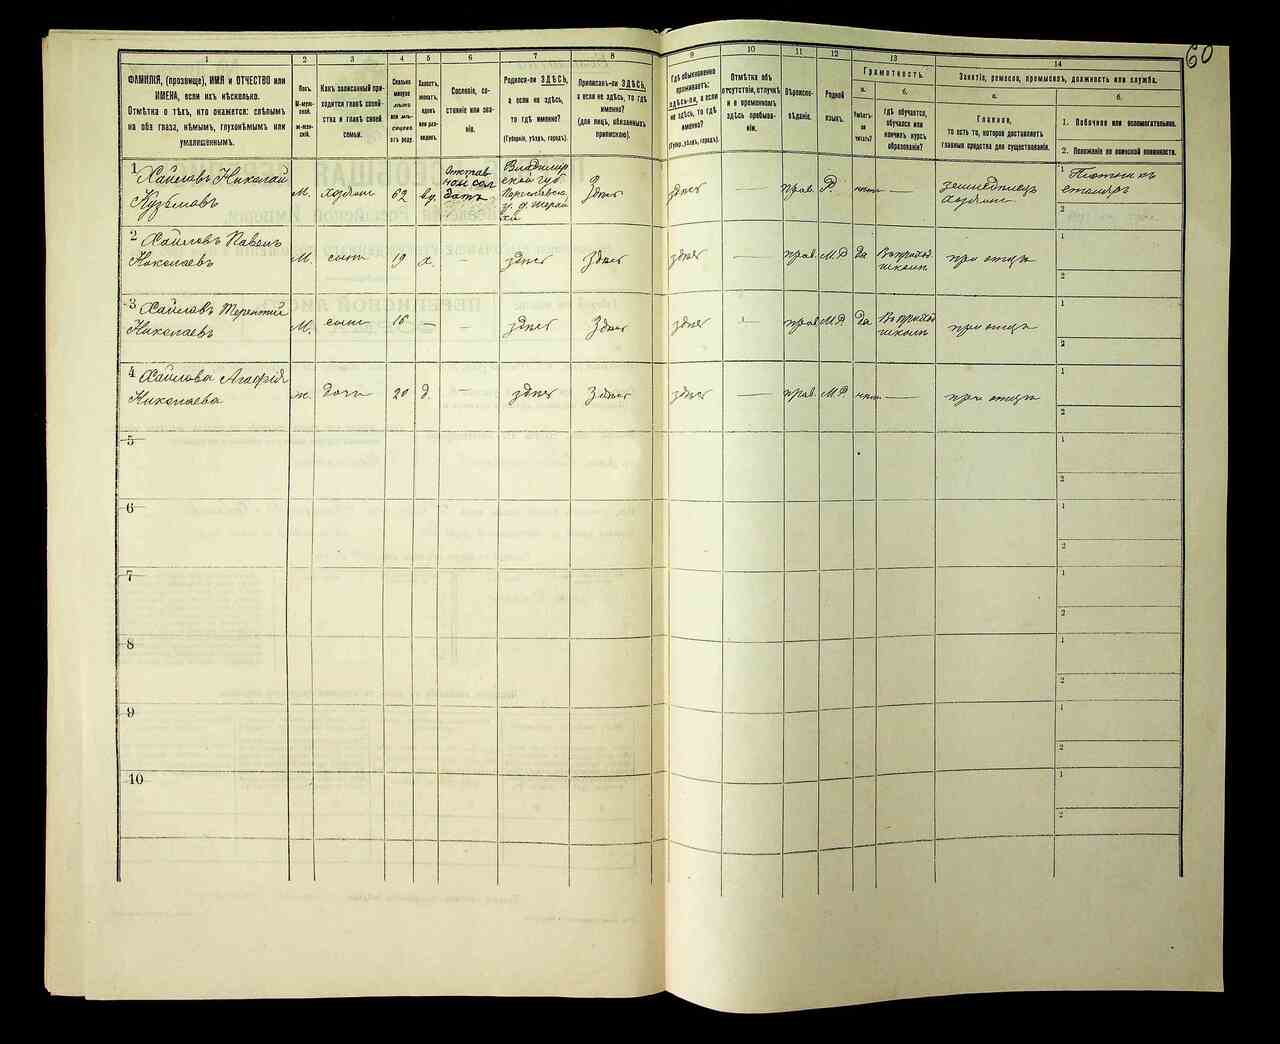 60
1
2
3
4
5
6
7
8
9
10
11
12
13
14
ФАМИЛІЯ, (прозвище), ИМЯ и ОТЧЕСТВО или
ИМЕНА, если ихъ нѣсколько.
Отмѣтка о тѣхъ, кто окажется: слѣпымъ
на оба глаза, нѣмымъ, глухонѣмымъ или
умалишеннымъ.
Полъ.
М-муж-
ской.
Ж-жен-
скій.
Какъ записанный при-
ходится главѣ хозяй-
ства и главѣ своей
семьи.
Сколько
минуло
лѣтъ
или мѣ-
сяцевъ
отъ роду.
Холостъ,
женатъ,
вдовъ
или раз-
веденъ.
Сословіе, со-
стояніе или зва-
ніе.
Родился-ли ЗДѢСЬ,
а если не здѣсь,
то гдѣ именно?
(Губернія, уѣздъ, городъ).
Приписанъ-ли ЗДѢСЬ,
а если не здѣсь, то гдѣ
именно?
(для лицъ, обязанныхъ
припискою).
Гдѣ обыкновенно
проживаетъ:
здѣсь-ли, а если
не здѣсь, то гдѣ
именно?
(Губер., уѣздъ, городъ).
Отмѣтка объ
отсутствіи, отлучкѣ
и о временномъ
здѣсь пребыва-
ніи.
Вѣроиспо-
вѣданіе.
Родной
языкъ.
Грамотность.
а.
Умѣетъ-
ли
читать?
б.
гдѣ обучается,
обучался или
кончилъ курсъ
образованія?
Занятіе, ремесло, промыселъ, должность или служба.
а.
Главное,
то есть то, которое доставляетъ
главныя средства для существованія.
б.
1. Побочное или вспомогательное.
2. Положеніе по воинской повинности.
1 Хайловъ Николай
Кузьмовъ
М. хозяин 62 вд.
Отстав
ной сол
датъ
Владимір
ской губ
Здѣсь здѣсь — прав. Р. нѣт —
земледѣлец
хозяин
1 Плотникъ
столяръ
2
2 Хайловъ Павелъ
Николаевъ
М. сынъ 19 х. — здѣсь Здѣсь здѣсь — прав. М.Р. да
Въ приход
школѣ
при отцѣ
1
2
3 Хайловъ Терентій
Николаевъ
М. сынъ 16 — — здѣсь Здѣсь здѣсь — прав. М.Р. да
Въ приход
школѣ
при отцѣ
1
2
4 Хайлова Агафія
Николаева
ж. дочь 20 д. — здѣсь Здѣсь здѣсь — прав. М.Р. нѣт — при отцѣ
1
2
5
1
2
6
1
2
7
1
2
8
1
2
9
1
2
10
1
2